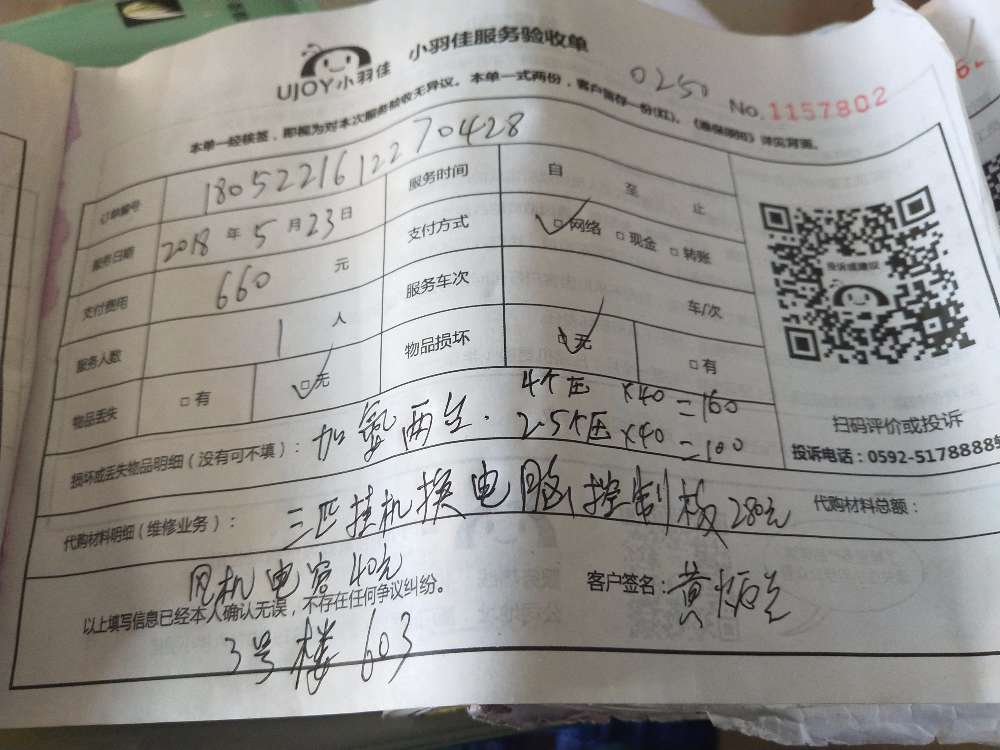 UJOY小羽佳 小羽佳服务验收单
0250 No.1157802
本单一经核签，即视为对本次服务验收无异议。本单一式两份，客户留存一份(红)。《服务明细》详见背面。
订单编号 1805221612270428 服务时间 自 至 止
服务日期 2018 年 5 月 23 日 支付方式 □网络 □现金 □转账
支付费用 660 元 服务车次 车/次
服务人数 1 人 物品损坏 □无 □有
物品丢失 □有 □无
投诉或建议
扫码评价或投诉
投诉电话：0592-5178889
4个压 ×40=160
损坏或丢失物品明细（没有可不填）： 加氟两台. 2.5个压×40=100
代购材料明细（维修业务）： 三匹挂机换电脑控制板280元 代购材料总额：
风机电容40元
以上填写信息已经本人确认无误，不存在任何争议纠纷。 客户签名：黄
3号楼 603